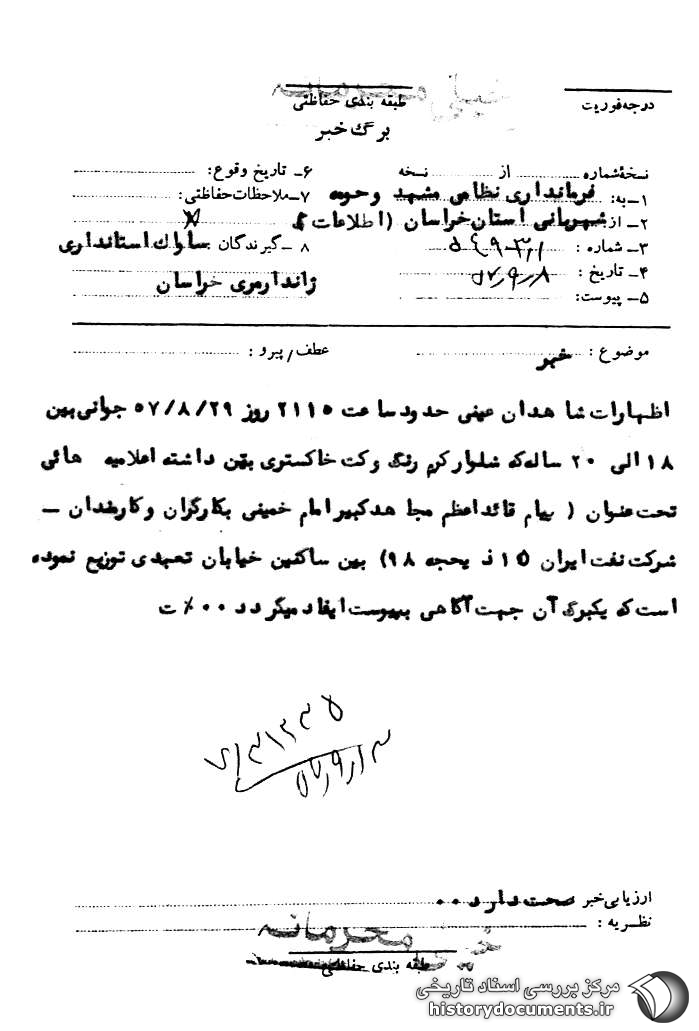 خیلی محرمانه
درجه فوریت
طبقه بندی حفاظتی
برگ خبر
نسخهٔ شماره .......... از .......... نسخه
۱ـ به: فرمانداری نظامی مشهد و حومه
۲ـ از شهربانی استان خراسان (اطلاعات)
۳ـ شماره :
۴ـ تاریخ : ۵۷/۹/۸
۵ـ پیوست:
۶ـ تاریخ وقوع:
۷ـ ملاحظات حفاظتی:
۸ ـ گیرندگان ساواک استانداری
ژاندارمری خراسان
موضوع : خبر
عطف/پیرو :
اظهارات شاهدان عینی حدود ساعت ۲۱۱۵ روز ۵۷/۸/۲۹ جوانی بین
۱۸ الی ۲۰ ساله که شلوار کرم رنگ و کت خاکستری بتن داشته اعلامیه هائی
تحت عنوان ( پیام قائد اعظم مجاهد کبیر امام خمینی بکارگران و کارمندان ـ
شرکت نفت ایران (۱۵ ذیحجه ۹۸) بین ساکنین خیابان تعبدی توزیع نموده
است که یکبرگ آن جهت آگاهی بپیوست ایفاد میگردد ۰۰٪ ت
ارزیابی خبر صحت دارد ۰۰
نظریه :
خیلی محرمانه
طبقه بندی حفاظتی
مرکز بررسی اسناد تاریخی
historydocuments.ir